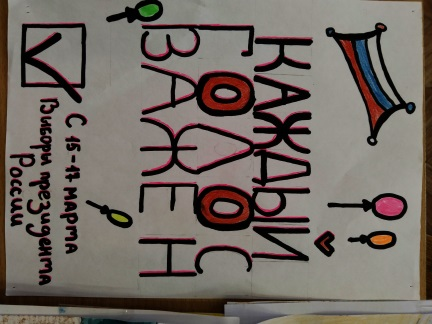 КАЖДЫЙ
ГОЛОС
ВАЖЕН
С 15-17 марта
Выборы президента
России